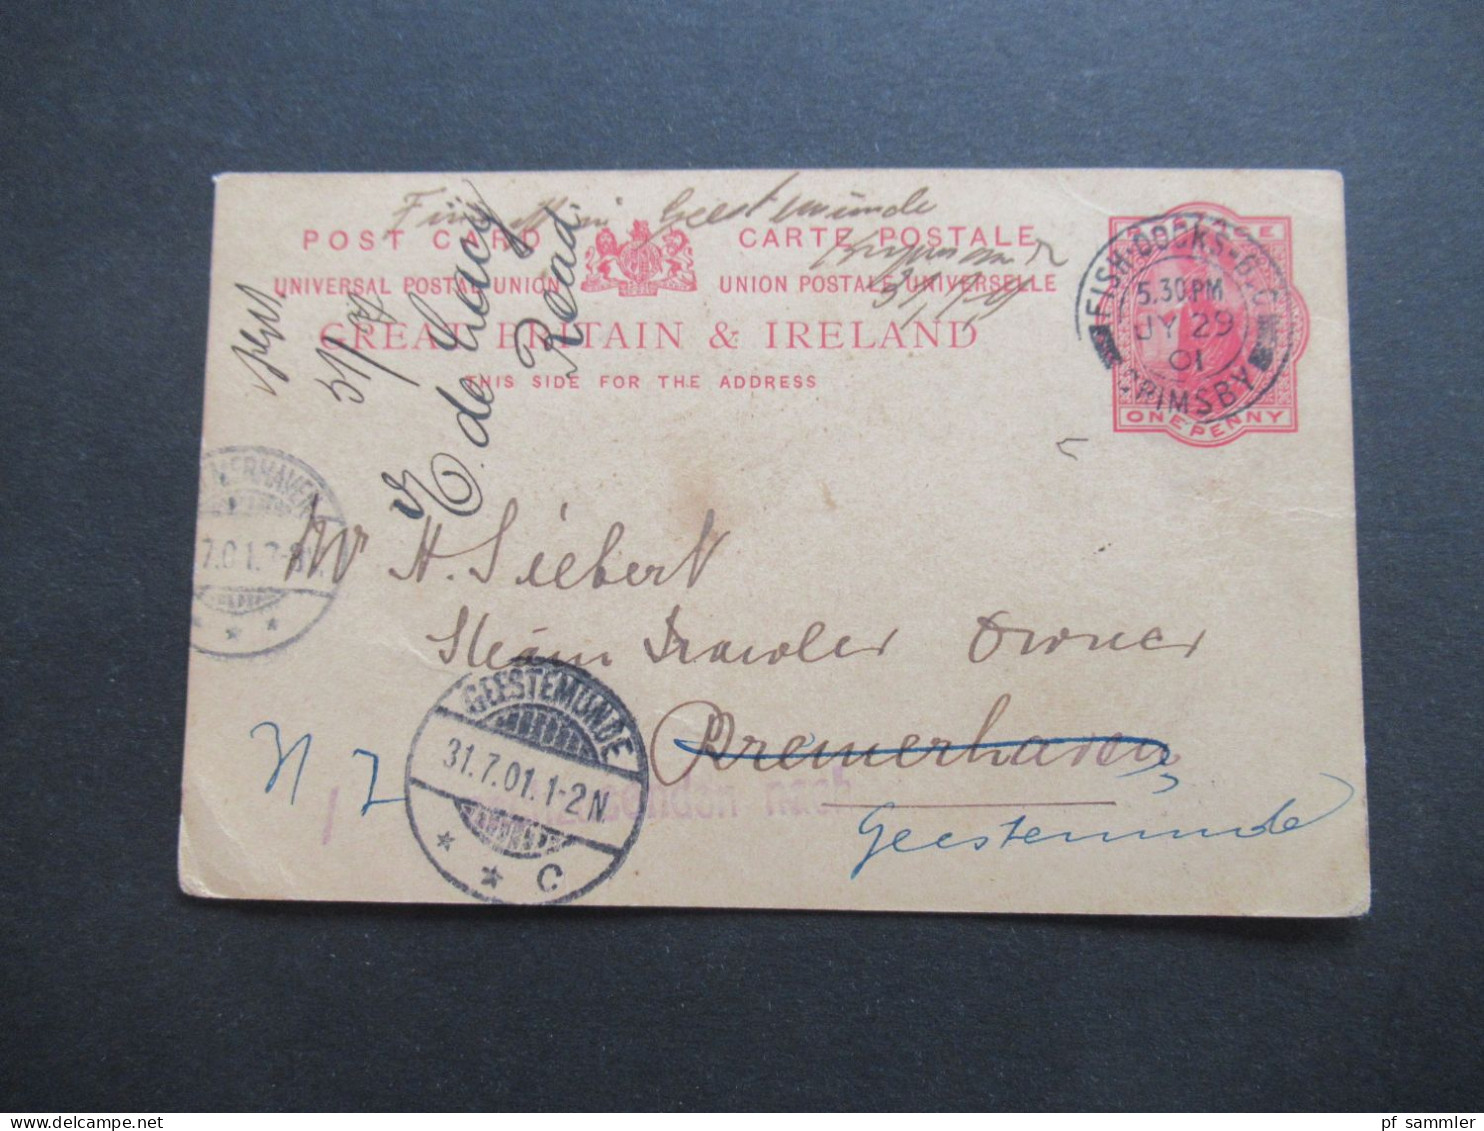 Geestemünde
POST CARD
CARTE POSTALE
UNIVERSAL POSTAL UNION
UNION POSTALE UNIVERSELLE
GREAT BRITAIN & IRELAND
THIS SIDE FOR THE ADDRESS
POSTAGE
ONE PENNY
FISH-DOCKS-B.O.
5.30PM
JY 29
01
GRIMSBY
Road
H. Siebert
Steam Trawler Owner
Bremerhaven
Geestemünde
nachzusenden nach
BREMERHAVEN
7.01.7-8N
GEESTEMÜNDE
31.7.01.1-2N
* * C
pf sammler